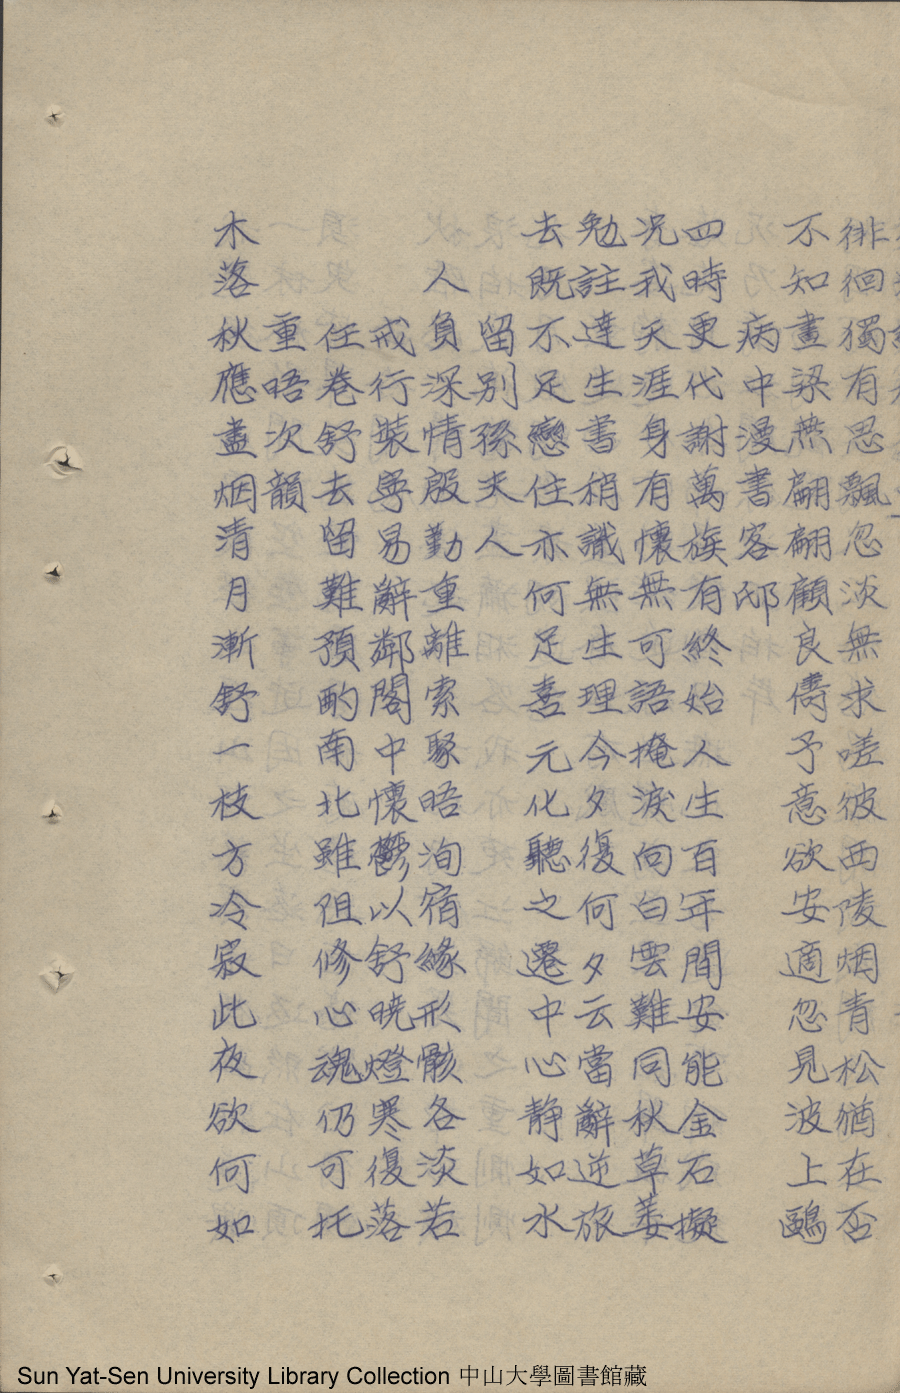 徘徊獨有思飄忽淡無求嗟彼西陵烟青松猶在否
不知畫梁燕翩翩顧良儔予意欲安適忽見波上鷗
病中漫書客邸
四時更代謝萬族有終始人生百年間安能金石擬
况我天涯身有懷無可語掩淚向白雲難同秋草萎
勉註達生書稍識無生理今夕復何夕云當辭逆旅
去既不足戀住亦何足喜元化聽之遷中心静如水
留别孫夫人
人負深情殷勤重離索聚晤洵宿緣形骸各淡若
戒行裝寧易辭鄰閣中懷鬱以舒曉燈寒復落
任卷舒去留難預酌南北雖阻修心魂仍可托
重晤次韻
木落秋應盡烟清月漸舒一枝方冷寂此夜欲何如
Sun Yat-Sen University Library Collection 中山大學圖書館藏